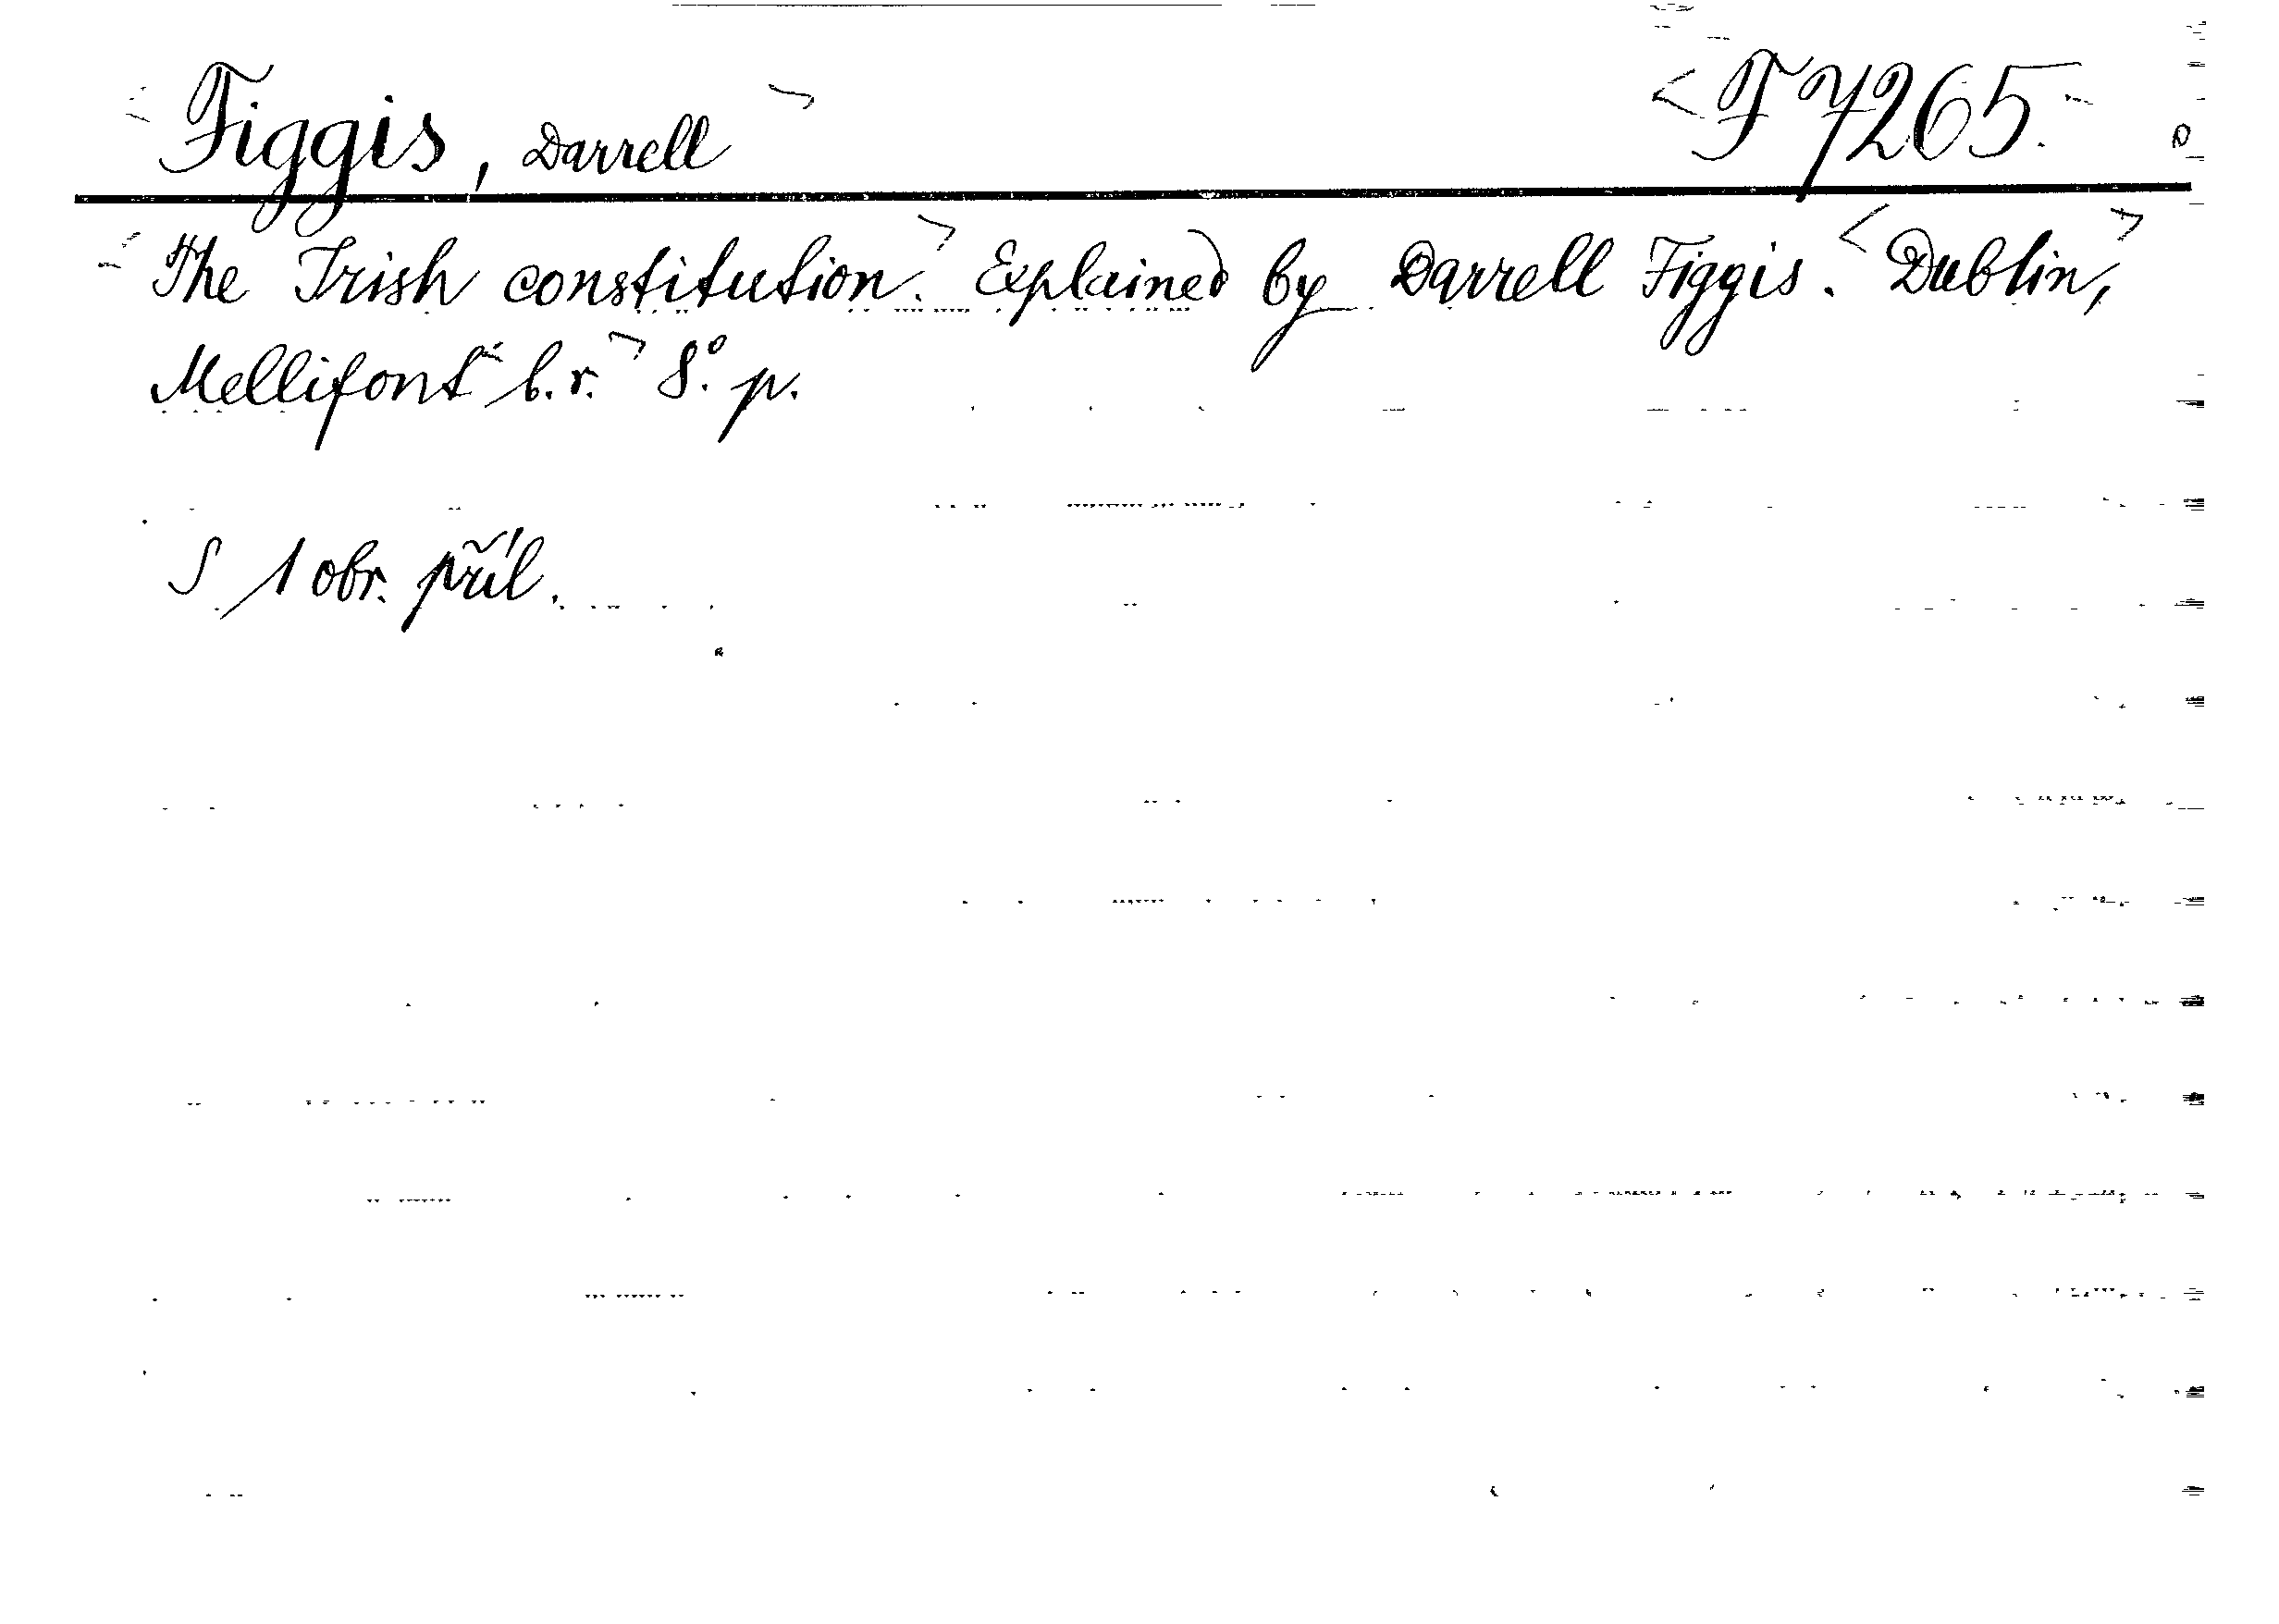 Figgis, Darrell
F 7265.
The Irish constitution. Explained by Darrell Figgis. Dublin,
Mellifont b.r. 8° p.
S 1 obr. příl.